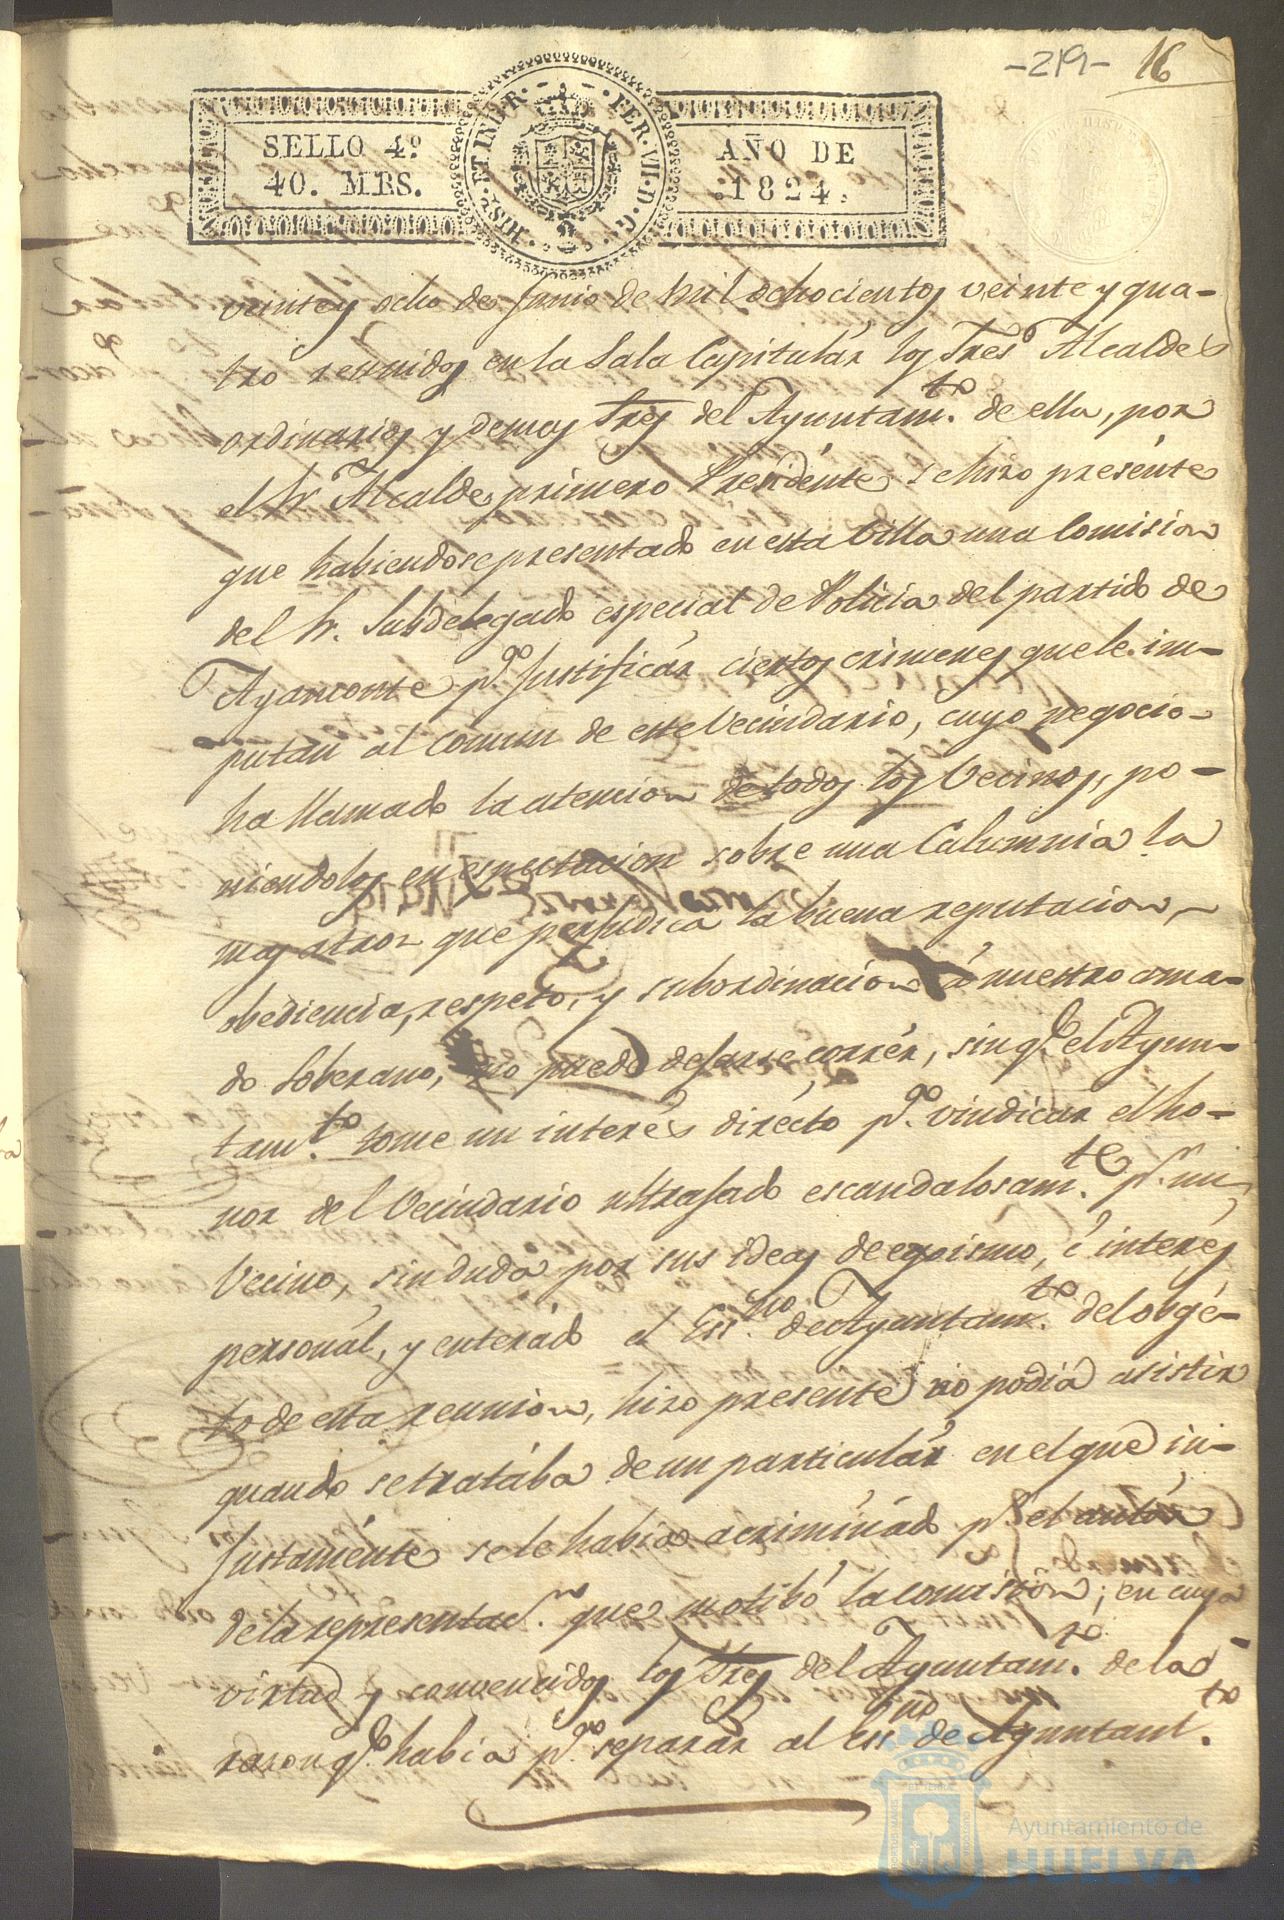 -219- 16
SELLO 4º
40. MRS.
HISP. ET IND. R. FER. VII. D. G.
AÑO DE
1824.
veinte y ocho de Junio de mil ochocientos veinte y qua-
tro reunidos en la Sala Capitulár los Sres. Alcaldes
ordinarios y demas Sres del Ayuntam.to de ella, por
el Sr. Alcalde primero Presidénte se hizo presénte
que habiendose presentado en esta Villa una Comision
del Sr. Subdelegado especial de Policía del partido de
Ayamonte p.ª Justificár ciertos crimenes que le im-
putan al comun de este Vecindario, cuyo negocio
ha llamado la atencion de todos los Vecinos, po-
niendolos en espectacion sobre una Calumnia la
mas atroz que perjudica la buena reputacion,
obediencia, respeto, y subordinacion á nuestro ama-
do Soberano, no puede dejarse corrér, sin q.e el Ayun-
tam.to tome un interés dirécto p.ª vindicár el ho-
nor del Vecindario ultrajado escandalosam.te p.r un
Vecino, sin duda por sus ideas de egoismo, é interés
personál, y enterádo el Ess.no de Ayuntam.to del obgé-
to de esta reunion, hizo presente no podia asistir
quando se tratába de un particulár en el que in-
justaménte se le habia acriminádo p.r el autór
de la representac.n que motibó la comision; en cuya
virtad y convencidos los Sres del Ayuntam.to de la
razon q.e habia p.ª separár al Ess.no de Ayuntam.to
Ayuntamiento de
HUELVA